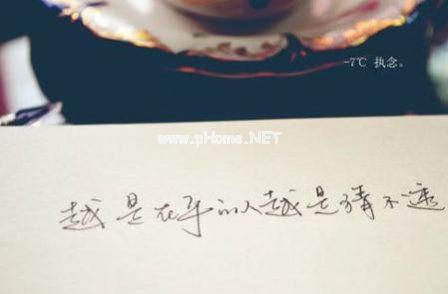 -7℃ 执念。
www.pHome.NET
越是在乎的人越是猜不透